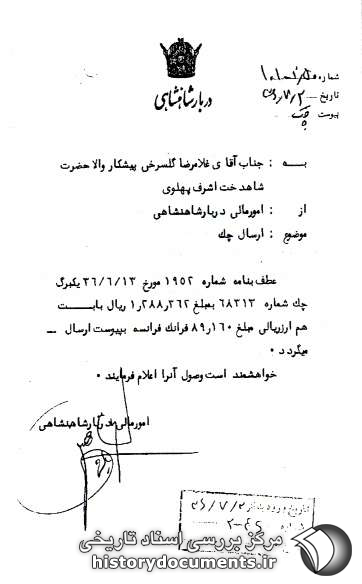 دربار شاهنشاهی
شماره
تاریخ ۳۶/۷/۲
پیوست چک
به : جناب آقای غلامرضا گلسرخی پیشکار والاحضرت
شاهدخت اشرف پهلوی
از : امورمالی دربارشاهنشاهی
موضوع : ارسال چک
عطف بنامه شماره ۱۹۵۲ مورخ ۳۶/۶/۱۳ یکبرگ
چک شماره ۶۸۳۱۳ بمبلغ ۱٫۲۸۸٫۲۶۲ ریال بابست
هم ارزریالی مبلغ ۸۹٫۱۶۰ فرانک فرانسه بپیوست ارسال —
میگردد ۰
خواهشمند است وصول آنرا اعلام فرمایند ۰
امورمالی دربارشاهنشاهی
۳۶/۷/۲
مرکز بررسی اسناد تاریخی
historydocuments.ir